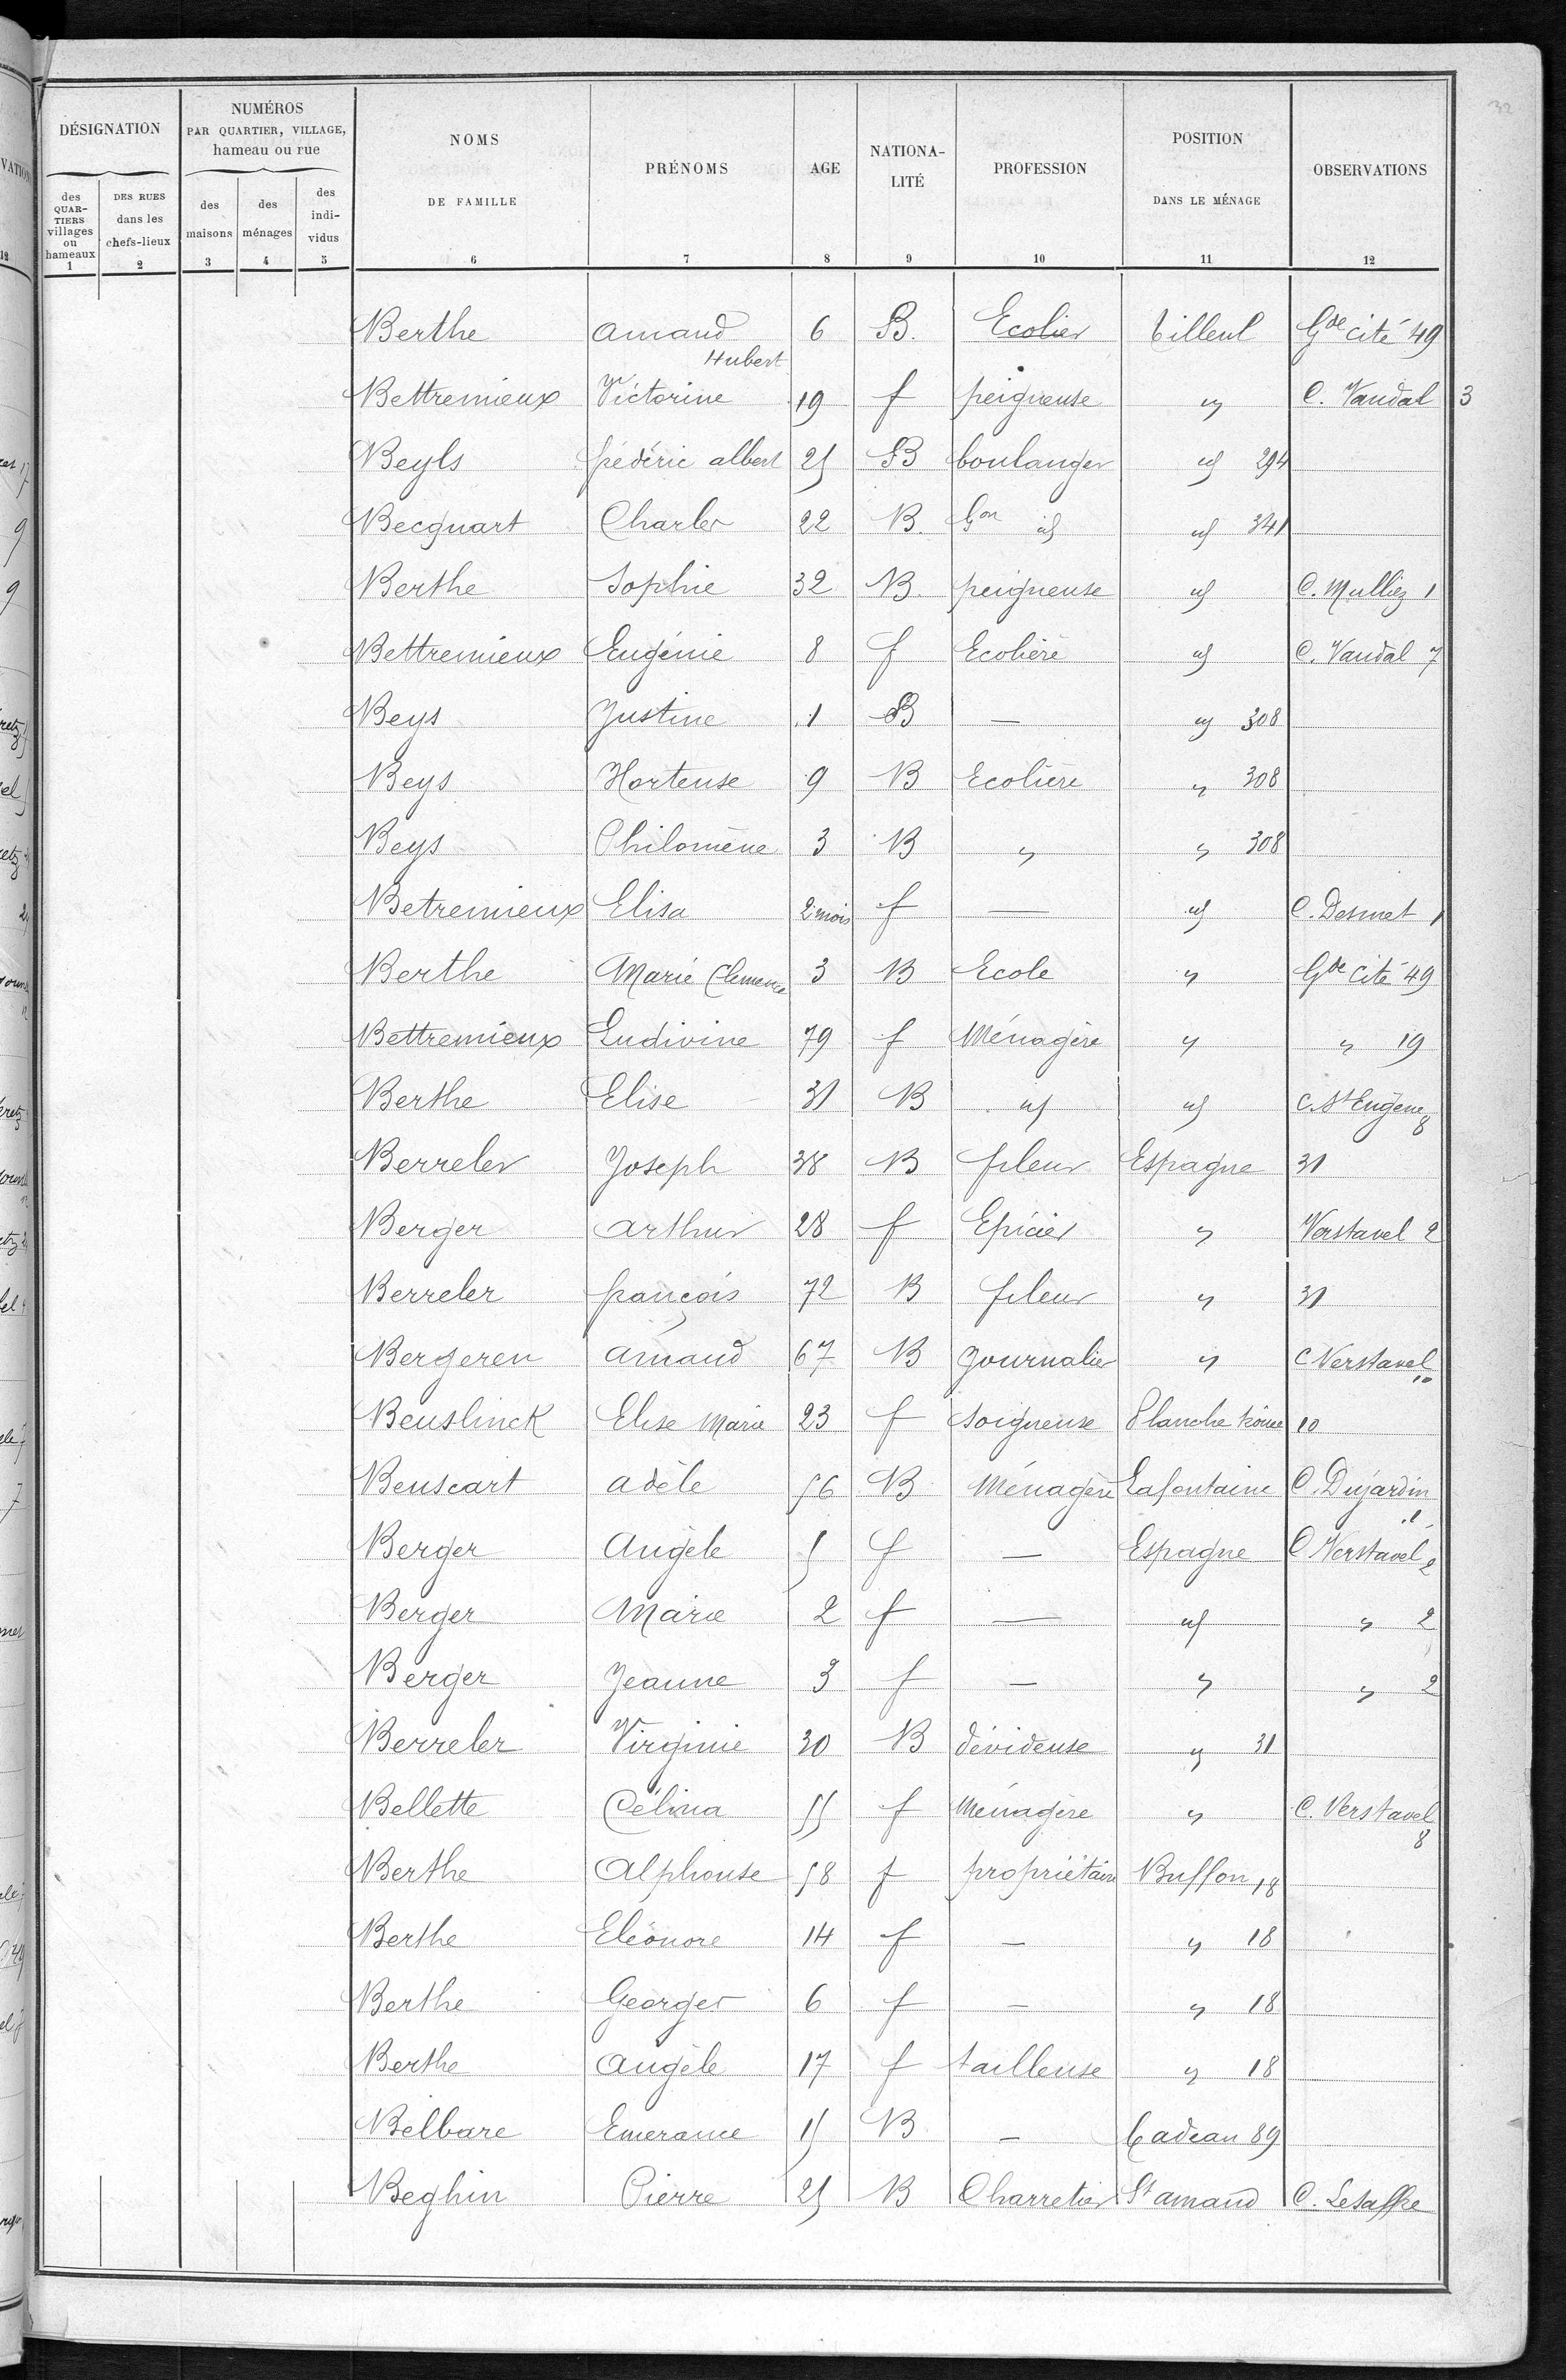 32
DÉSIGNATION
NUMÉROS
PAR QUARTIER, VILLAGE,
hameau ou rue
NOMS
DE FAMILLE
PRÉNOMS
AGE
NATIONA-
LITÉ
PROFESSION
POSITION
DANS LE MÉNAGE
OBSERVATIONS
des
QUAR-
TIERS
villages
ou
hameaux
DES RUES
dans les
chefs-lieux
des
maisons
des
ménages
des
indi-
vidus
1 2 3 4 5 6 7 8 9 10 11 12
Berthe Amand 6 B. Ecolier Tilleul Gde cité 49
Hubert
Bettremieux Victorine 19 f peigneuse " C. Vandal 3
Beyls frédéric albert 25 B boulanger id 294
Becquart Charles 22 B. Gon id id 341
Berthe Sophie 32 B. peigneuse id C. Mulliez 1
Bettremieux Eugénie 8 f Ecolière id C. Vandal 7
Beys Justine 1 B — id 308
Beys Hortense 9 B Ecolière " 308
Beys Philomène 3 B " " 308
Betremieux Elisa 2 mois f — id C. Desmet 1
Berthe Marie Clemence 3 B Ecole " Gde cité 49
Bettremieux Ludivine 79 f Ménagère " " 19
Berthe Elise 31 B id id C. St Eugène 8
Berreler Joseph 38 B fileur Espagne 31
Berger arthur 28 f Epicier " Verstavel 2
Berreler françois 72 B fileur " 31
Bergeren Amand 67 B Journalier " C Verstavel 10
Beuslinck Elise Marie 23 f soigneuse Planche trouée 10
Beuscart adèle 56 B Ménagère Lafontaine C. Dujardin 1
Berger Angèle 5 f — Espagne C Verstavel 2
Berger Marie 2 f — id " 2
Berger Jeanne 3 f — " " 2
Berreler Virginie 30 B dévideuse " 31
Bellette Célina 55 f Ménagère " C. Verstavel 8
Berthe Alphonse 58 f propriétaire Buffon 18
Berthe Eléonore 14 f — " 18
Berthe Georges 6 f — " 18
Berthe Angèle 17 f tailleuse " 18
Belbare Emerance 15 B — Cadeau 89
Beghin Pierre 25 B Charretier St amand C. Lesaffre